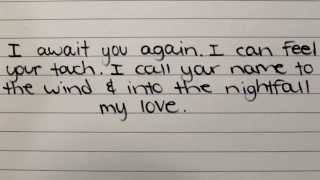 I await you again. I can feel
your tach. I call your name to
the wind & into the nightfall
my love.